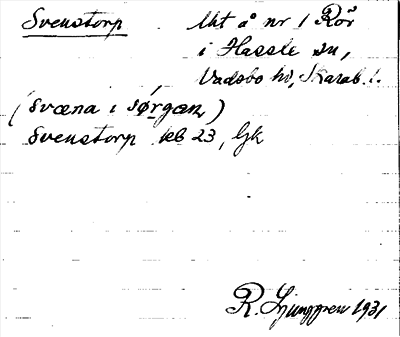 Svenstorp lht å nr 1 Rör
i Hassle sn,
Vadsbo hd, Skarab. l.
(svæna i sørgan)
Svenstorp kb 23, Gk
R. Ljunggren 1931